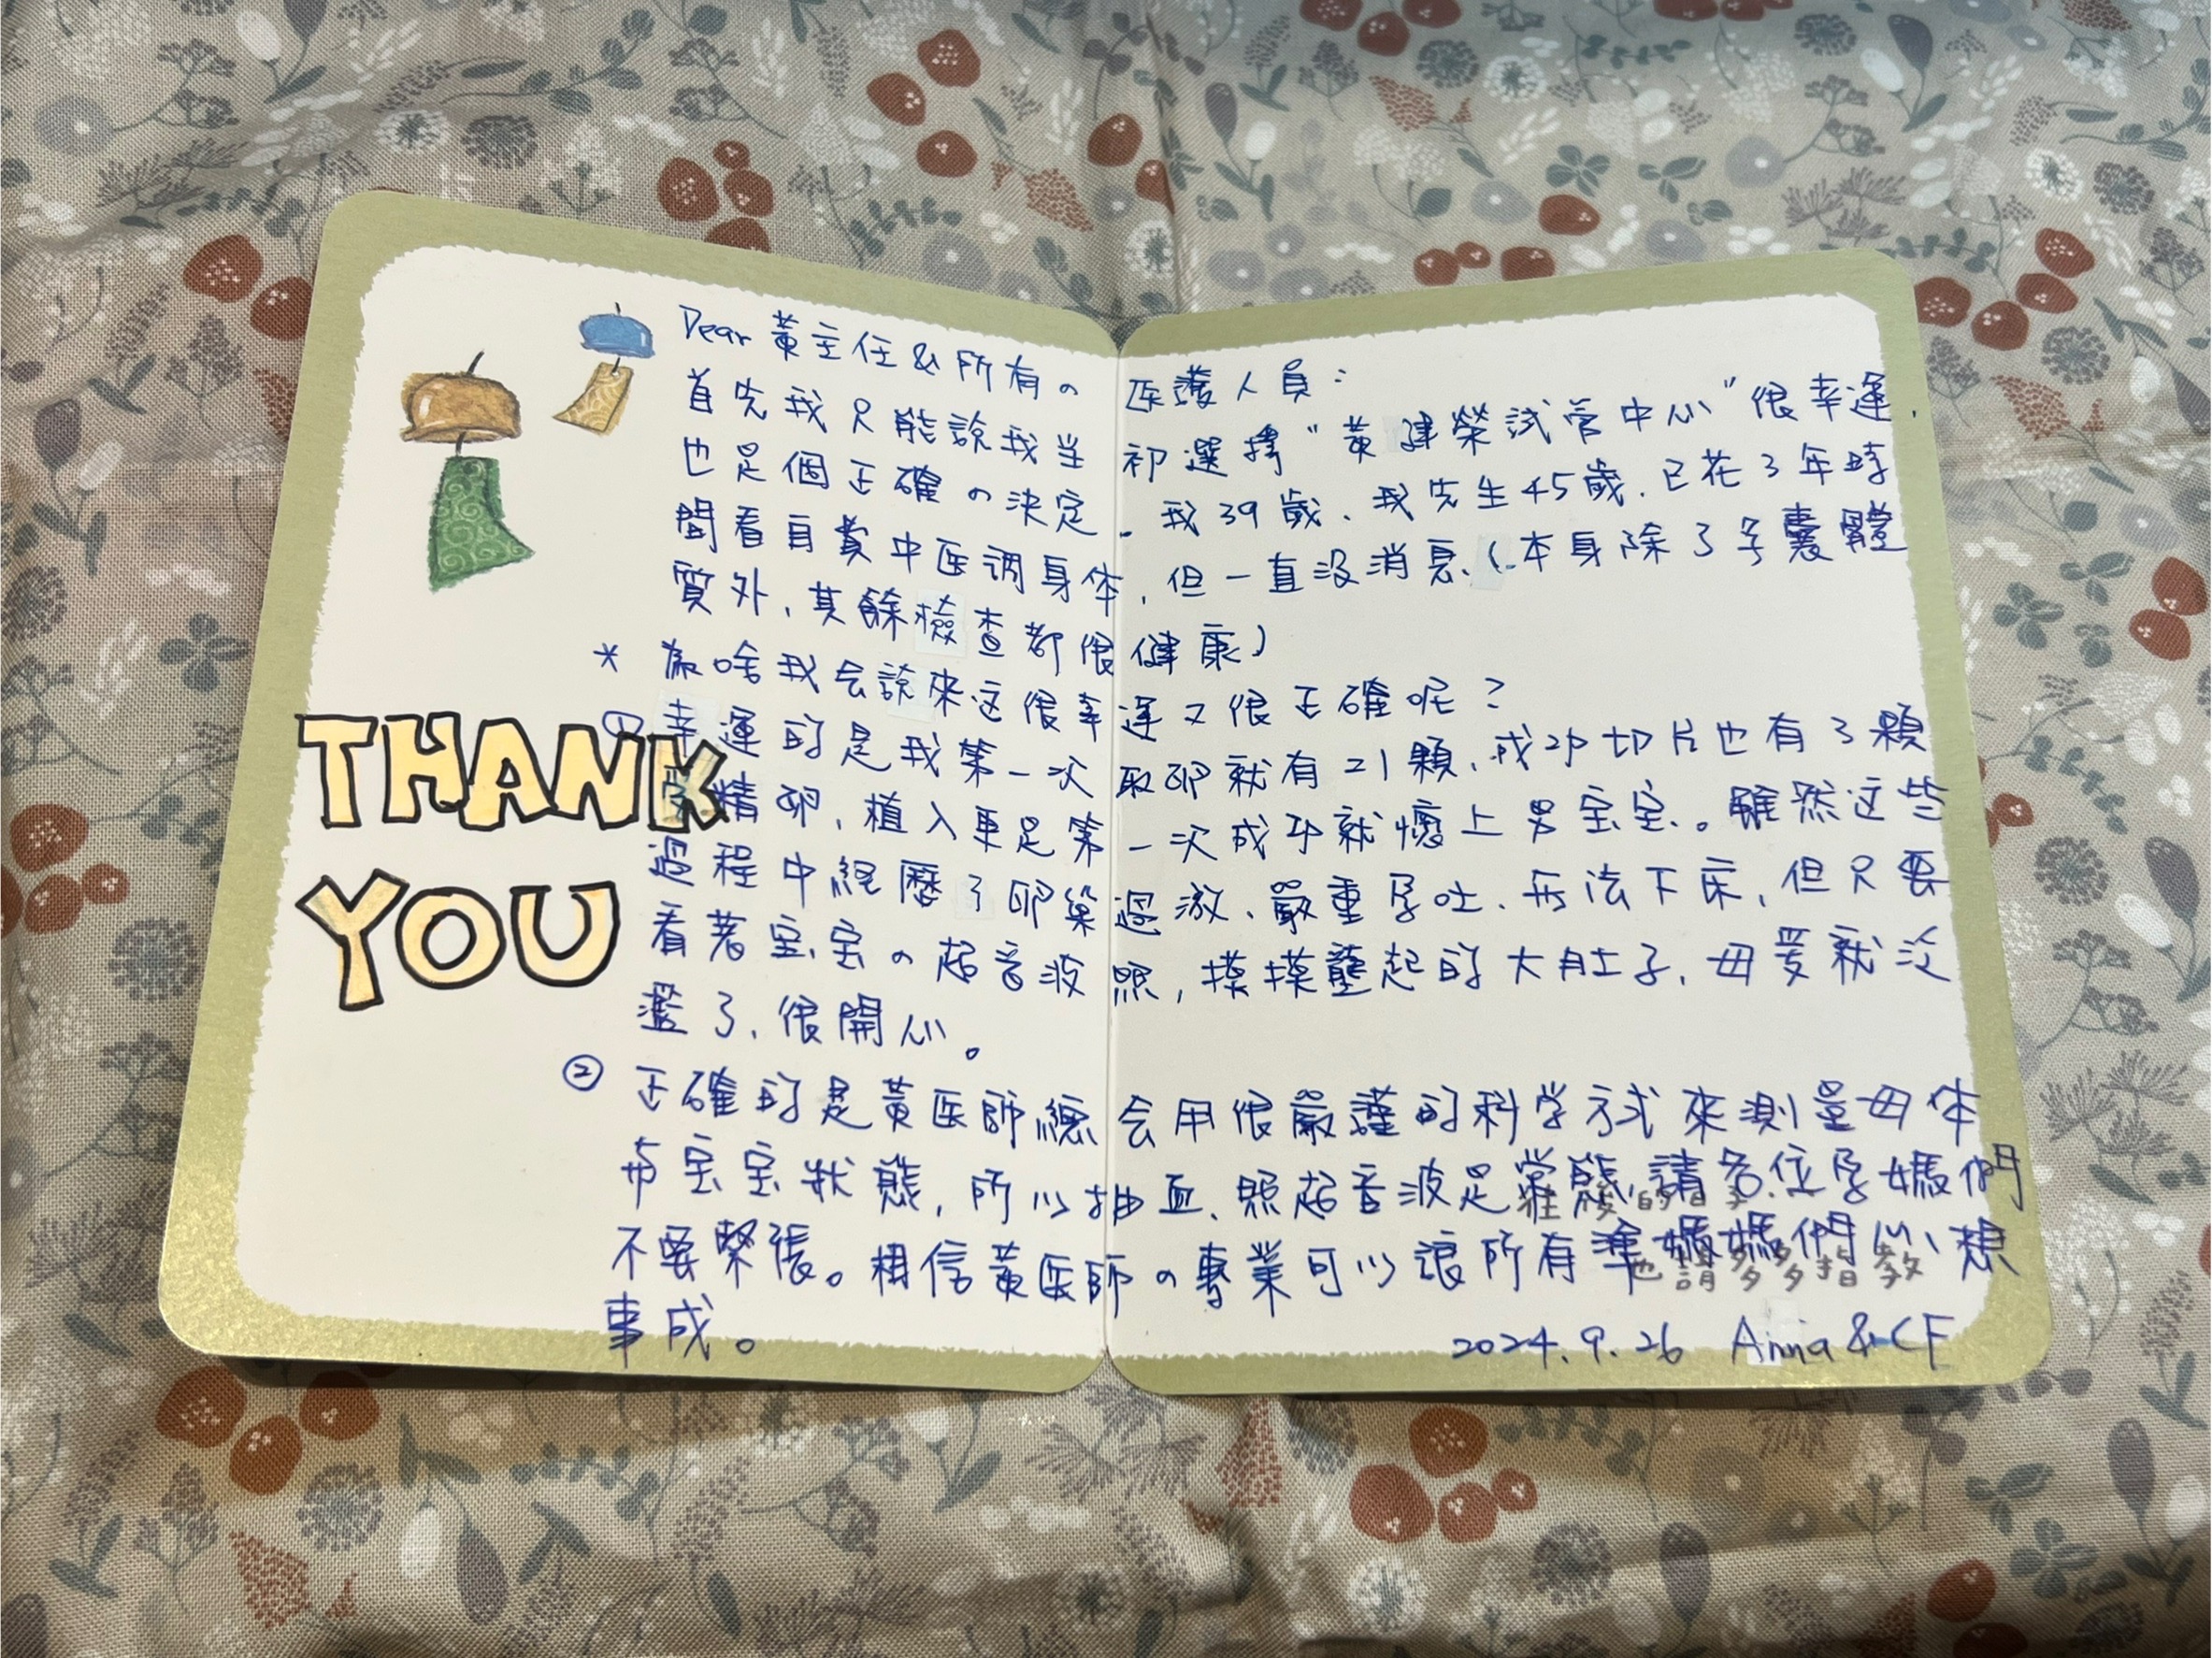 Dear 黃主任 & 所有の医護人員：
首先我只能說我当初選擇"黃建榮試管中心"很幸運，
也是個正確の決定。我39歲、我先生45歲，已花了3年時
間看自費中医调身体，但一直沒消息（本身除了多囊體
質外，其餘檢查都很健康）
* 為啥我会說來这很幸運又很正確呢？
① 幸運的是我第一次取卵就有21顆，成功切片也有3顆
受精卵，植入更是第一次成功就懷上男宝宝。雖然这些
過程中經歷了卵巢過激、嚴重孕吐、无法下床，但只要
看著宝宝の超音波照，摸摸蘢起的大肚子，母爱就泛
濫了，很開心。
② 正確的是黃医師總会用很嚴謹的科学方式來測量母体
宝宝狀態，所以抽血、照超音波是常態，請各位孕媽們
不要緊張。相信黃医師の專業可以讓所有準媽媽們心想
事成。
2024.9.26 Anna & CF
THANK
YOU
往後的日子
也請多多指教